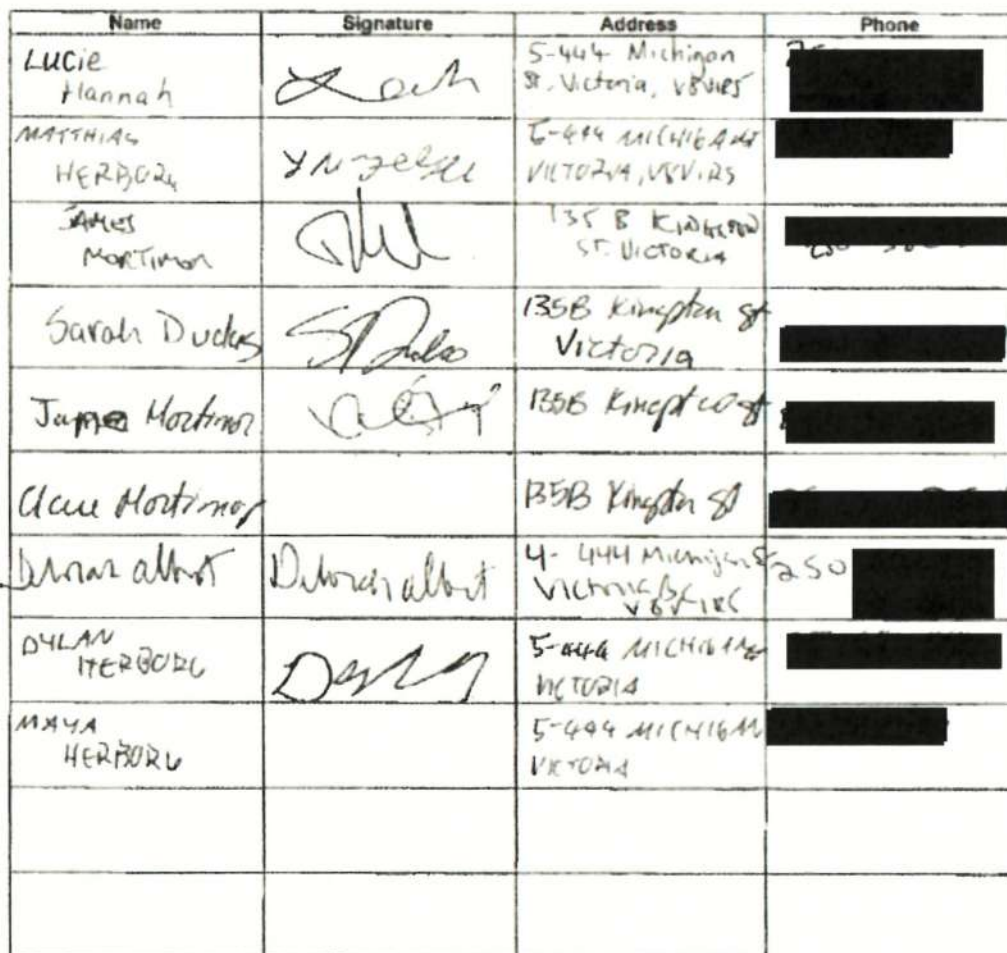 Name Signature Address Phone
Lucie
Hannah
5-444 Michigan
St. Victoria, V8V1R5
MATTHIAS
HERBORG
5-444 MICHIGAN ST
VICTORIA, V8V1R5
JAMES
MORTIMOR
135 B KINGSTON
ST. VICTORIA
Sarah Duckas
135B Kingston St
Victoria
Mortimor 135B Kingston St
Mortimor 135B Kingston St
Deborah albert Deborah albert
4-444 Michigan St
Victoria BC
250
DYLAN
HERBORG
5-444 MICHIGAN
VICTORIA
MAYA
HERBORG
5-444 MICHIGAN
VICTORIA